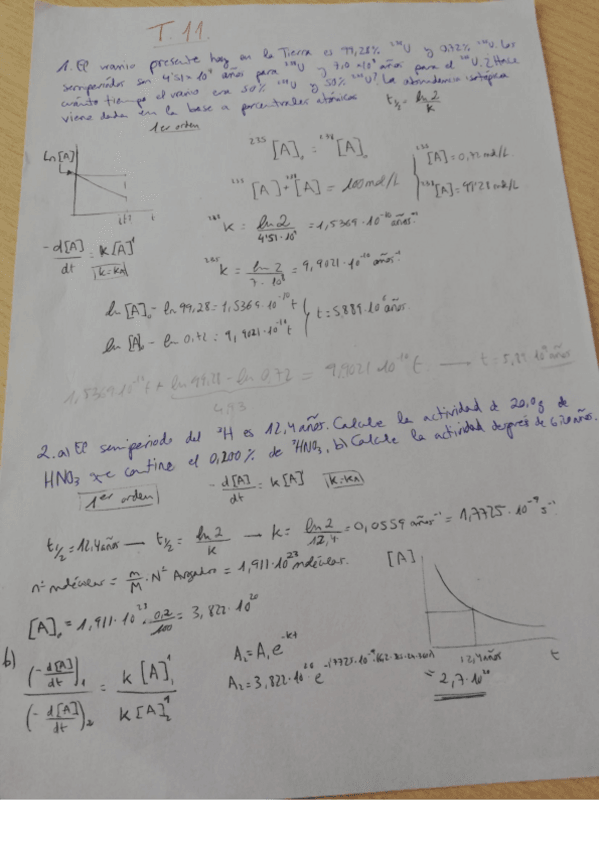 T.11.
1. El uranio presente hoy en la Tierra es 99,28% ²³⁸U y 0,72% ²³⁵U. Los
semiperíodos son 4'51×10⁹ años para ²³⁸U y 7,0×10⁸ años para el ²³⁵U. ¿Hace
cuánto tiempo el uranio era 50% ²³⁸U y 50% ²³⁵U? La abundancia isotópica
viene dada en la base a porcentajes atómicos
t½ = ln2/k
1er orden
Ln[A]
t
²³⁵[A]₀ = ²³⁸[A]₀
²³⁵[A] + ²³⁸[A] = 100 mol/L
²³⁵[A] = 0,72 mol/L
²³⁸[A] = 99'28 mol/L
-d[A]/dt = k[A]¹
k = kₐ
²³⁸k = ln2/4'51·10⁹ = 1,5369·10⁻¹⁰ años⁻¹
²³⁵k = ln2/7·10⁸ = 9,9021·10⁻¹⁰ años⁻¹
ln[A]₀ - ln 99,28 = 1,5369·10⁻¹⁰ t
ln[A]₀ - ln 0,72 = 9,9021·10⁻¹⁰ t
t = 5,889·10⁹ años.
1,5369·10⁻¹⁰ t + ln 99,28 - ln 0,72 = 9,9021·10⁻¹⁰ t. → t = 5,89·10⁹ años
4,93
2. a) El semiperiodo del ³H es 12,4 años. Calcule la actividad de 20,0g de
HNO₃ que contine el 0,200% de ³HNO₃. b) Calcule la actividad después de 6,20 años.
1er orden
-d[A]/dt = k[A]
k = kₐ
t½ = 12,4 años → t½ = ln2/k → k = ln2/12,4 = 0,0559 años⁻¹ = 1,7725·10⁻⁹ s⁻¹
nº moléculas = m/M · Nº Avogadro = 1,911·10²³ moléculas.
[A]₀ = 1,911·10²³ · 0,2/100 = 3,822·10²⁰
[A]
12,4 años
t
b)
(-d[A]/dt)₁ / (-d[A]/dt)₂ = k[A]₁¹ / k[A]₂¹
A₂ = A₁e^-kt
= 2,7·10²⁰